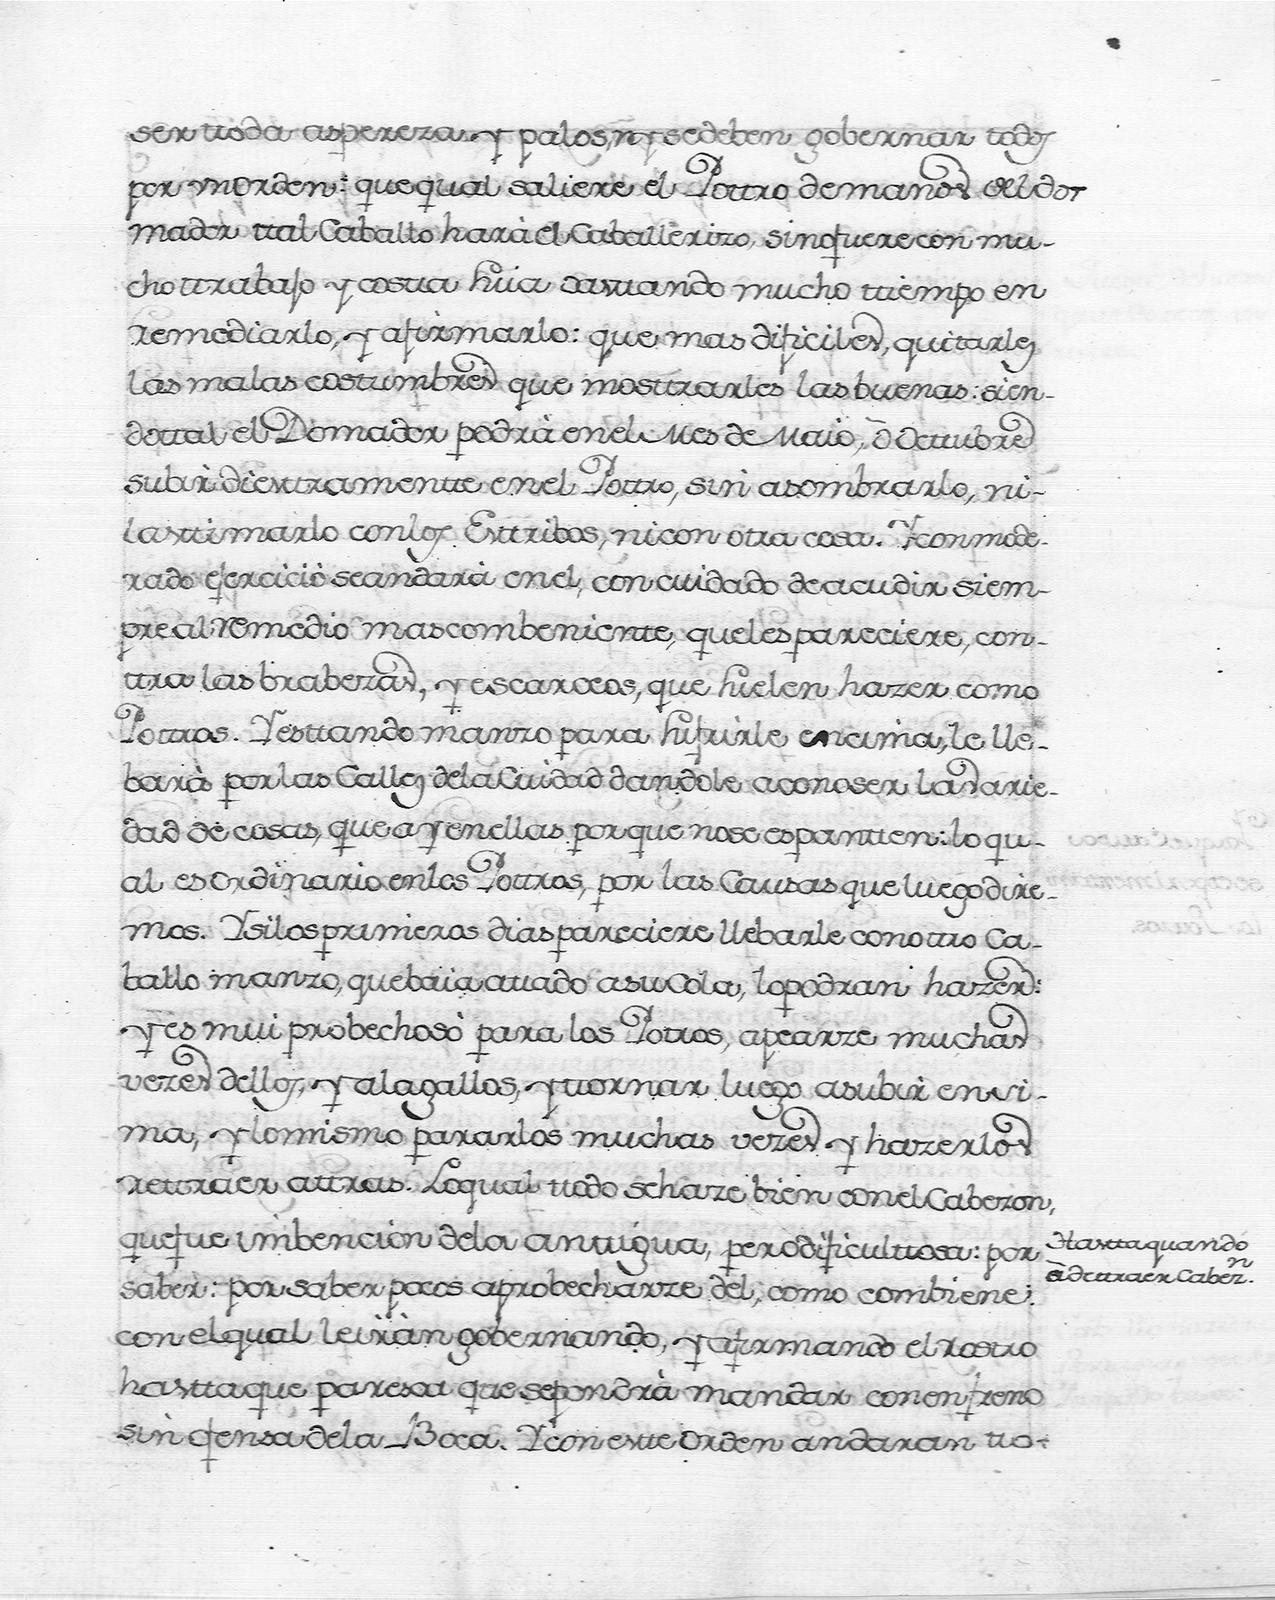 ser ttoda aspereza y palos, ny se deben gobernar todos
por un orden: que qual saliere el Pottro de manos del dor
mador ttal Caballo harà el Caballerizo, sin que recon mu-
cho ttrabajo y costta huia gasttando mucho ttiempo en
remediarlo, y afirmarlo: que mas dificil es, quitarles
las malas costumbres que mosttrarles las buenas: sien-
do ttal el Domador podrà en el Mes de Maio, ò Octtubre
subir diesttramentte en el Pottro, sin asombrarlo, ni-
lasttimarlo con los Esttribos, ni con otra cosa. Y con mode-
rado ejercicio se andarà en el, con cuidado de acudir siem-
pre al remedio mas combenientte, que les pareciere, con-
ttra las brabezas, y escarceos, que suelen hazer como
Pottros. Y esttando manzo para sufrirle encima, le lle-
barà por las Calles de la Cuidad dandole a conoser la varie-
dad de cosas, que ay en ellas por que no se espantten: lo qu-
al es Ordinario en los Pottros, por las Causas que luego dire-
mos. Y si los primeros dias pareciere llebarle con ottro Ca-
ballo manzo, que baia attado a su Cola, lo podran hazer:
y es mui probechosò para los Pottros, apearze muchas
vezes dellos, y alagallos, y ttornar luego a subir en ci-
ma, y lo mismo pararlos muchas vezes y hazerlos
rettraer attras. Lo qual ttodo se haze bien con el Cabezon,
que fue imbenciòn de la anttigua, pero dificulttosa: por
saber: por saber pocos aprobecharze del, como combiene:
con el qual le iràn gobernando, y afirmando el rostro
hastta que paresca que se pondrà mandar con en freno
sin ofensa de la Boca. Y con estte Orden andaran tto-
Hastta quando
à de ttraer Cabezn.